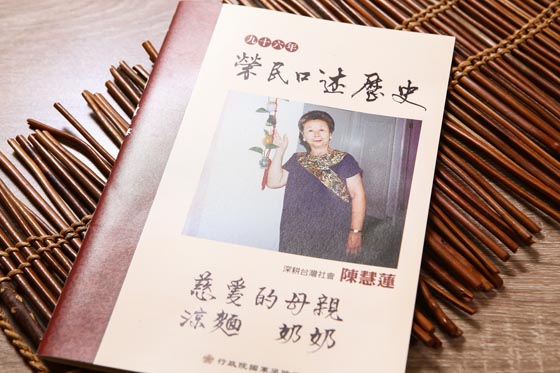 九十六年
榮民口述歷史
深耕台灣社會 陳慧蓮
慈愛的母親
涼麵 奶奶
行政院國軍退